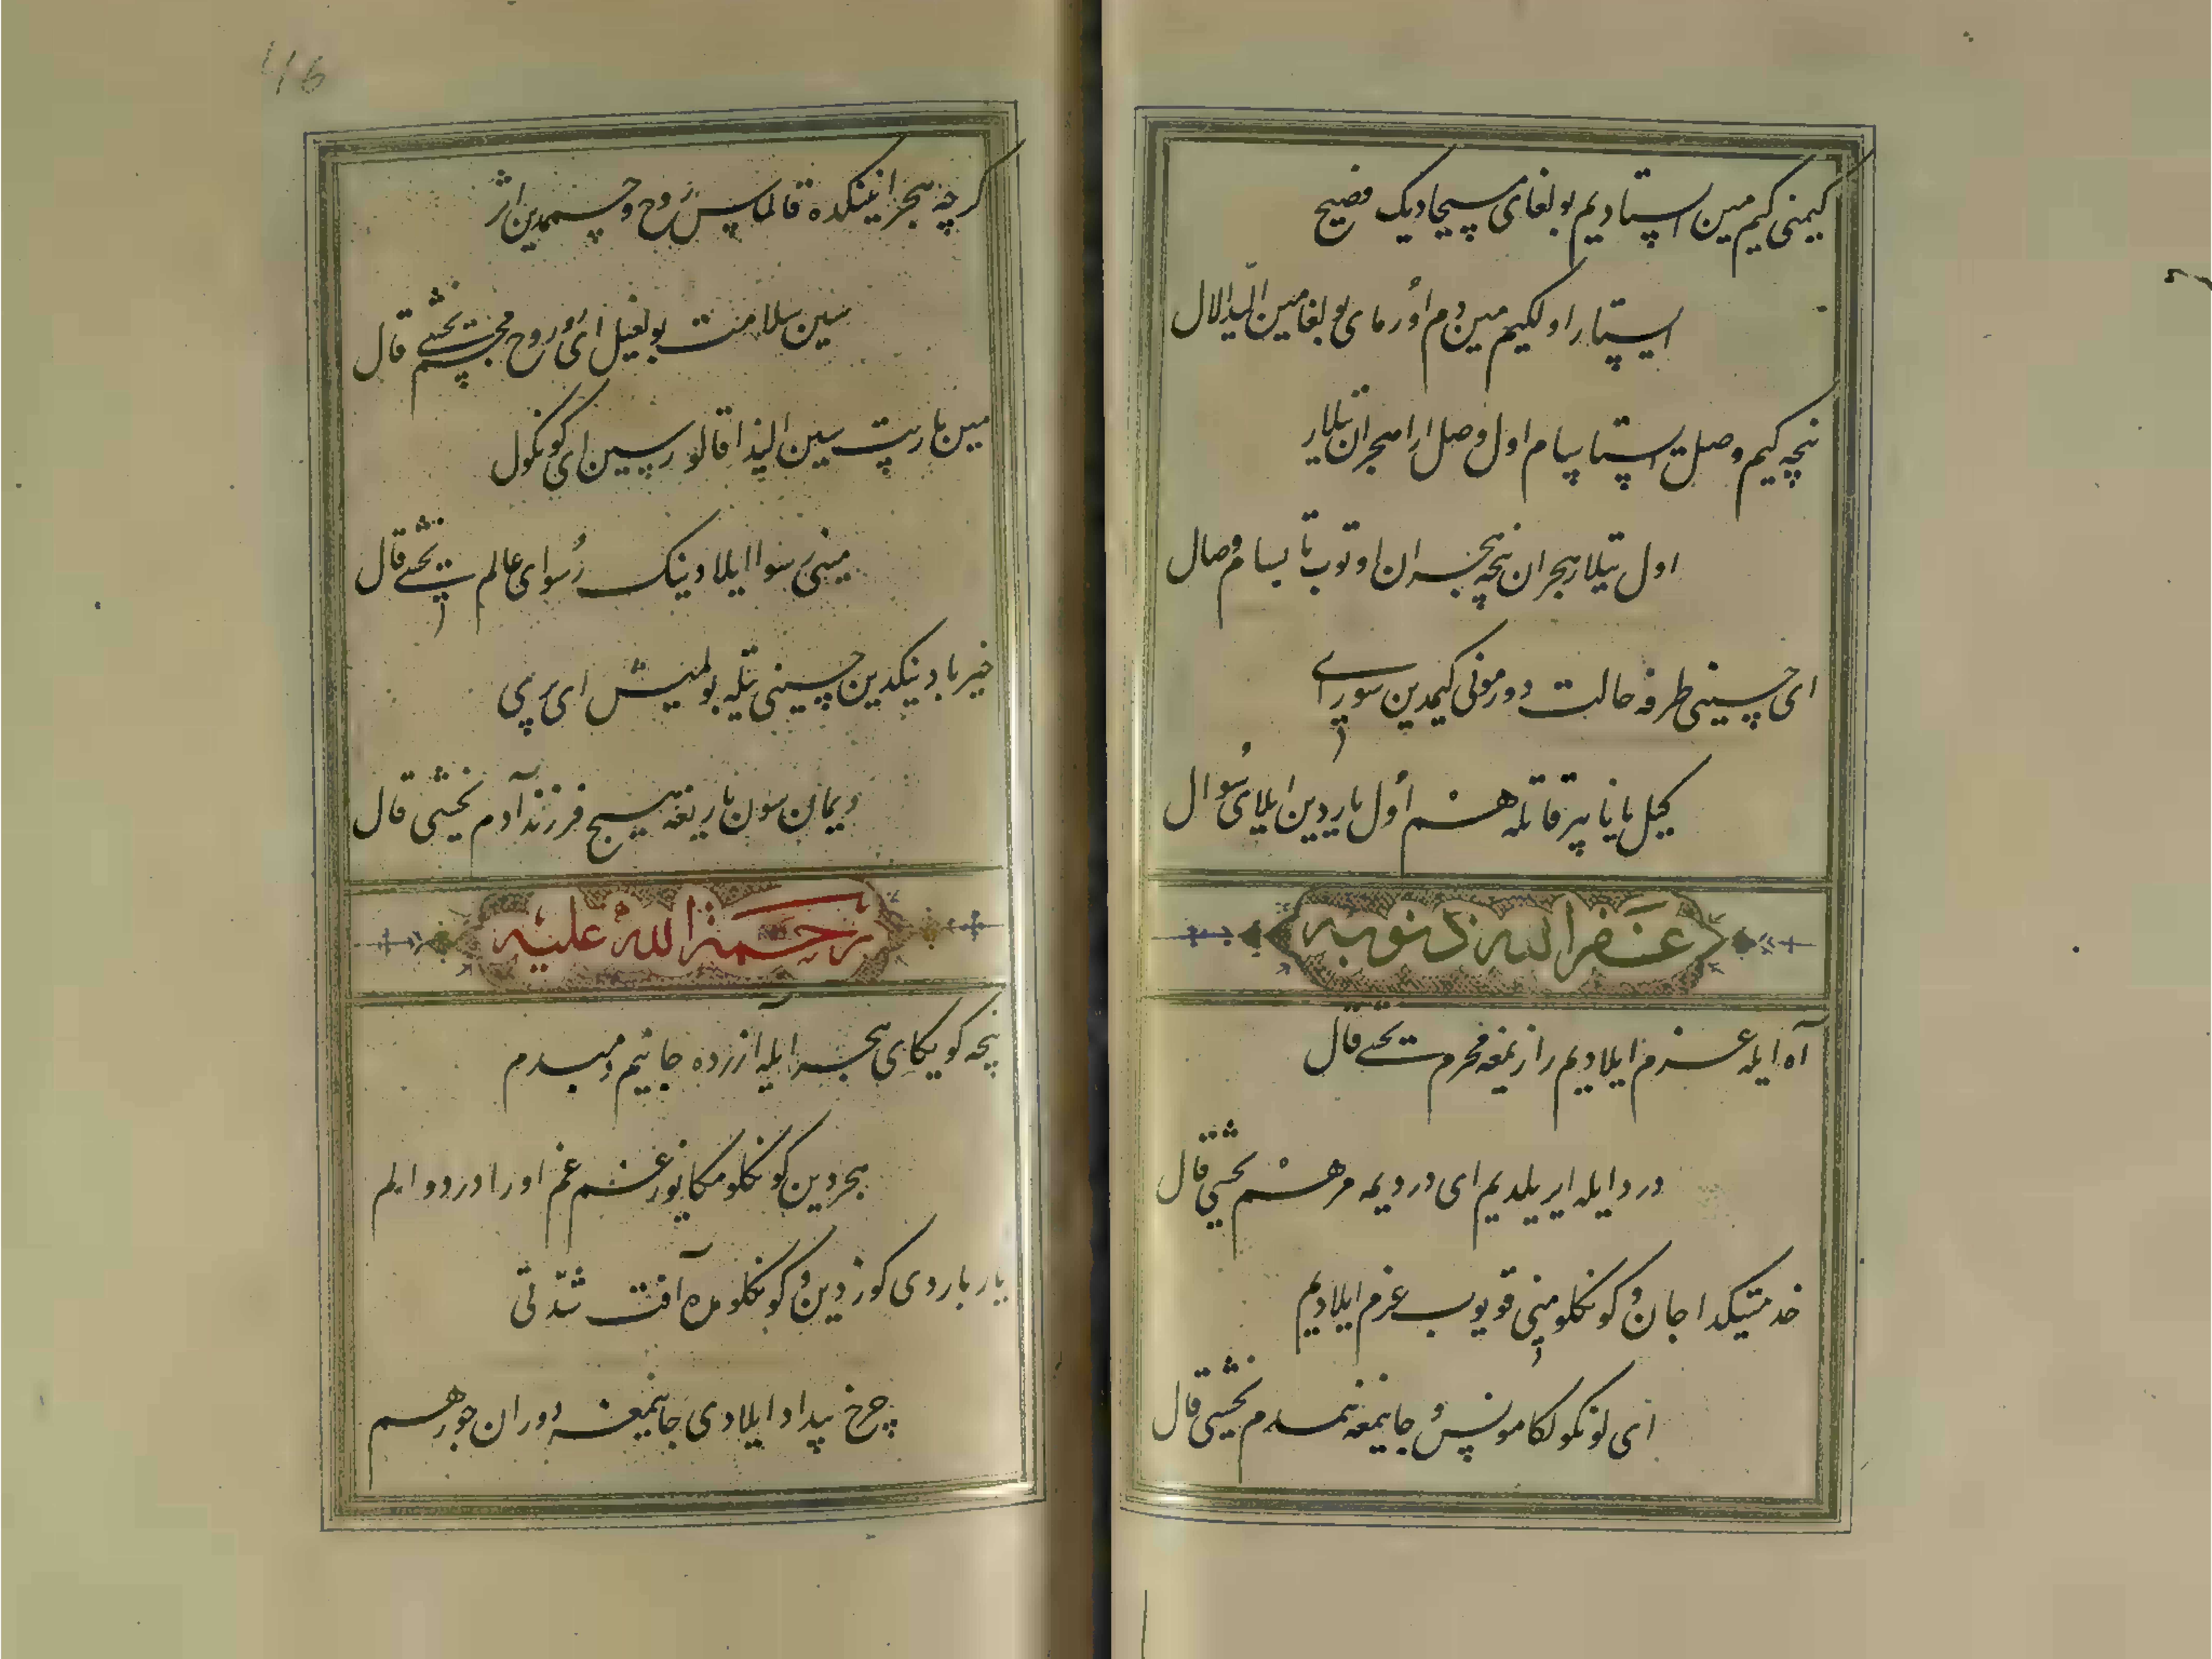 کیمنی کیم مین ایستادیم بولغای مسیحادیک فصیح
ایستار اولکیم مین دم اورمای بولغامین الیدا لال
نچه کیم وصلت ایستا پیام اول وصل ارا هجران تیلار
اول تیلار هجران نچه هجران اوتوب تاپسام وصال
ای حسینی طرفه حالت دور مونی کیمدین سورای
کیل یانا پیر قاتله هم اول یاردین ایلای سوال
غفر الله ذنوبه
آه ایله عزم ایلادیم رازیمغه محرم یخشی قال
درد ایله ایریلدیم ای دردیمه مرهم یخشی قال
خدمتینکدا جان و کونکلومنی قویوب عزم ایلادیم
ای کونکولکا مونس و جانیمغه همدم یخشی قال
کرچه هجرانینکده قالماس روح و جسمدین اثر
سین سلامت بولغیل ای روح مجسم یخشی قال
مین باریب سین الیدا قالورسین ای کونکول
مینی رسوا ایلادینک رسوای عالم یخشی قال
خیربادینکدین حسینی تیله بولمیش ای پری
دیمان سون باریغه هیچ فرزند آدم یخشی قال
رحمة الله علیه
نچه کویکای هجر ایله آزرده جانیم دمبدم
هجردین کونکلومکا یوز غم غم اورا درد و الم
یار باردی کوزدین و کونکلومده آفت شدتی
چرخ بیداد ایلادی جانیمغه دوران جور هم